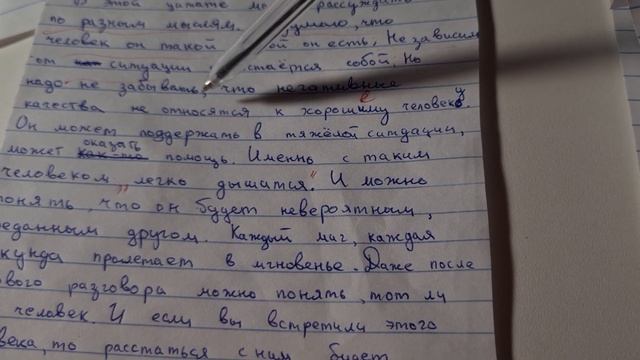 этой цитате рассуждать
по разным мыслям. что
человек он такой он есть. Не зависимо
от ситуации остаётся собой. Но
надо не забывать, что негативные
качества не относятся к хорошему человеку
Он может поддержать в тяжёлой ситуации,
может оказать помощь. Именно с таким
человеком „легко дышатся". И можно
понять, что он будет невероятным,
еданным другом. Каждый миг, каждая
кунда пролетает в мгновенье. Даже после
ового разговора можно понять, тот ли
человек. И если вы встретили этого
века, то расстаться с ним будет